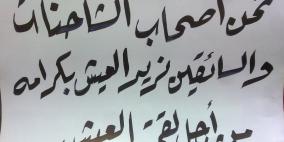 نحن أصحاب الشاحنات
والسائقين نريد العيش بكرامه
من أجل لقمة العيش